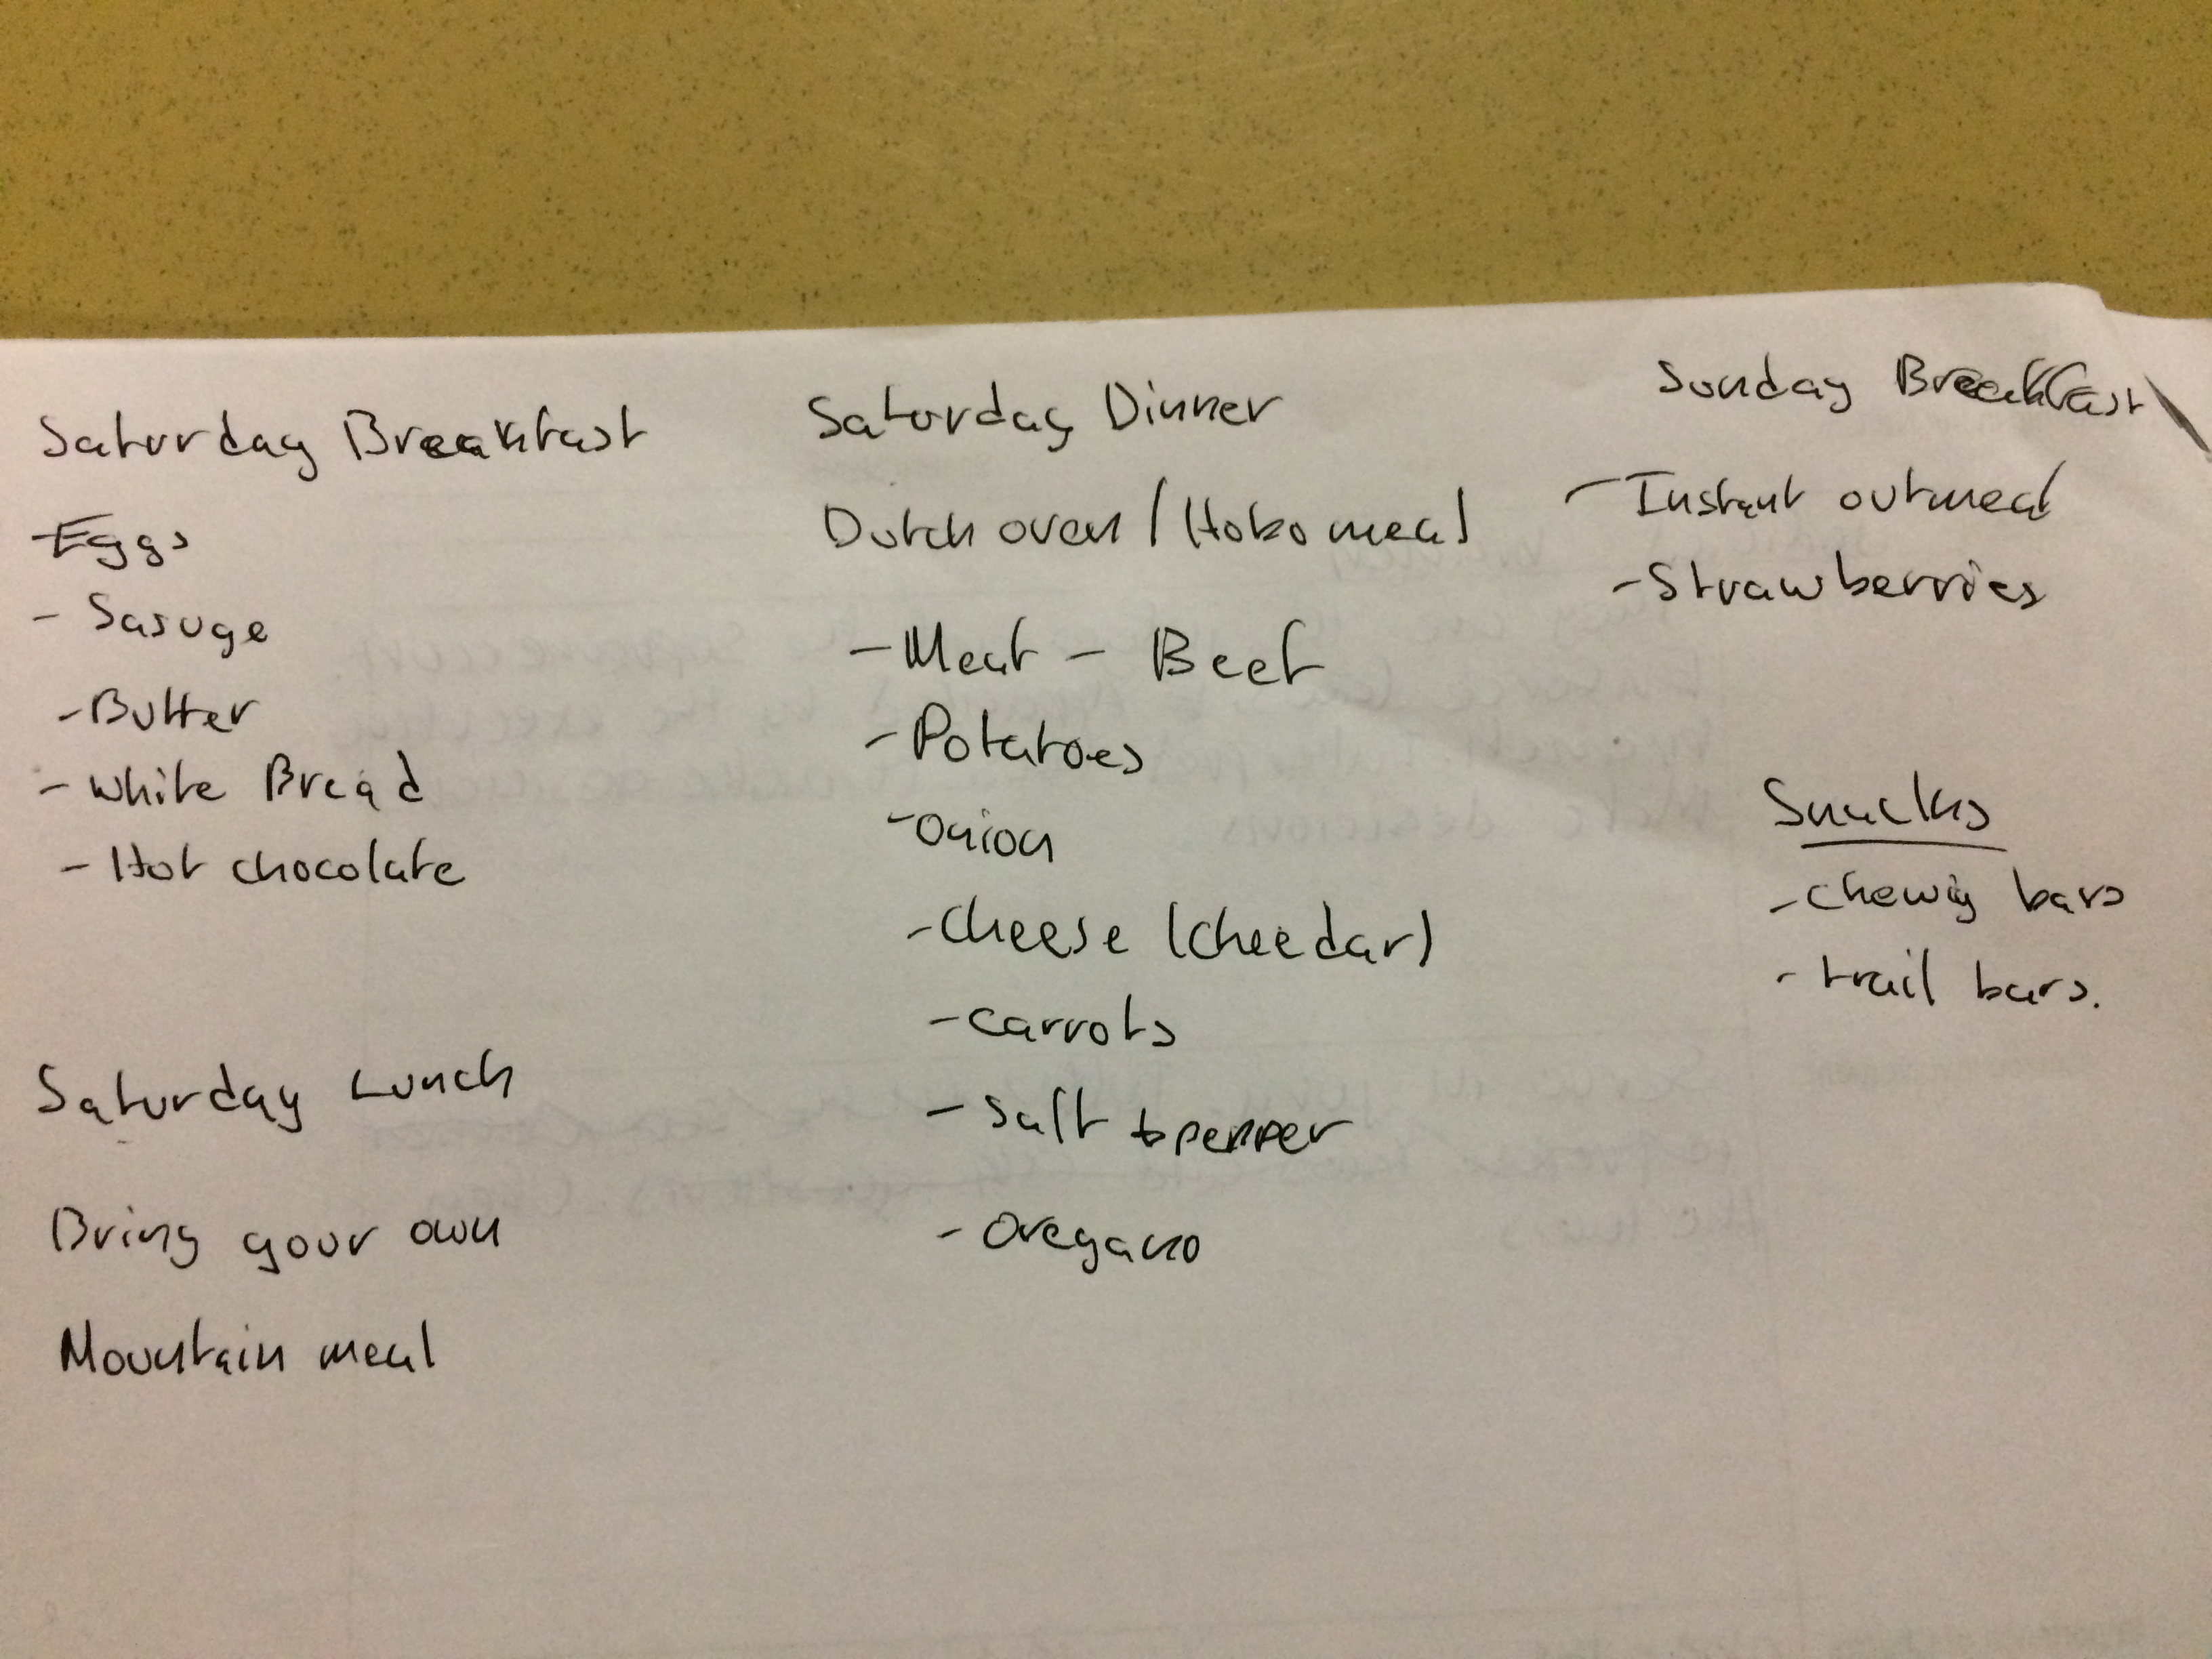 Saturday Breakfast
- Eggs
- Sasuge
- Butter
- White Bread
- Hot chocolate
Saturday Lunch
Bring your own
Mountain meal
Saturday Dinner
Dutch oven / Hobo meal
- Meat - Beef
- Potatoes
- Onion
- Cheese (cheedar)
- carrots
- Salt & pepper
- Oregano
Sunday Breakfast
- Instant outmeal
- Strawberries
Snacks
- Chewig bars
- trail bars.